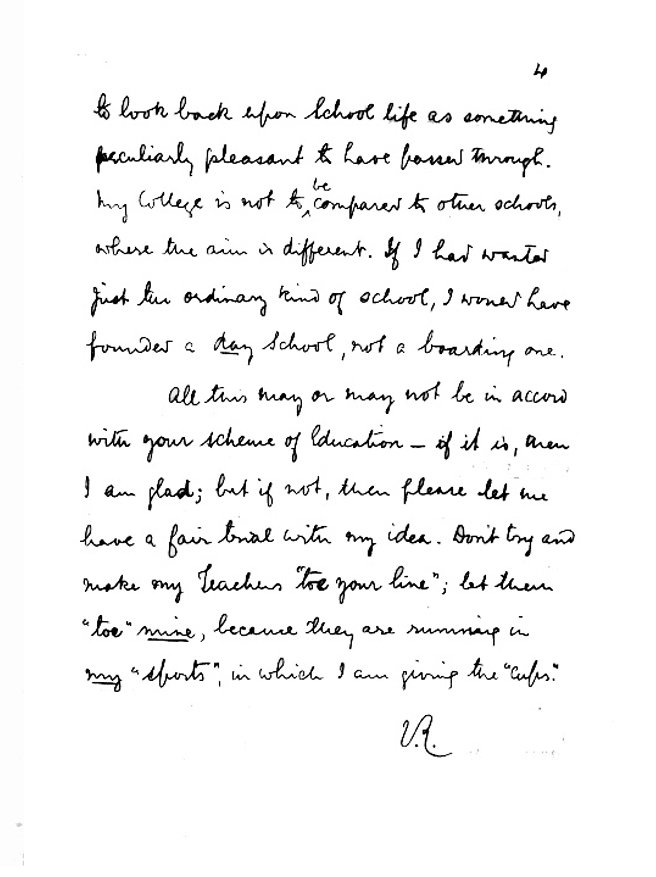 4
to look back upon School life as something
peculiarly pleasant to have passed through.
My College is not to be compared to other schools,
where the aim is different. If I had wanted
just the ordinary kind of school, I would have
founded a day School, not a boarding one.
All this may or may not be in accord
with your scheme of Education – if it is, then
I am glad; but if not, then please let me
have a fair trial with my idea. Don't try and
make my Teachers "toe your line"; let them
"toe" mine, because they are running in
my "sports", in which I am giving the "Cups."
V.R.